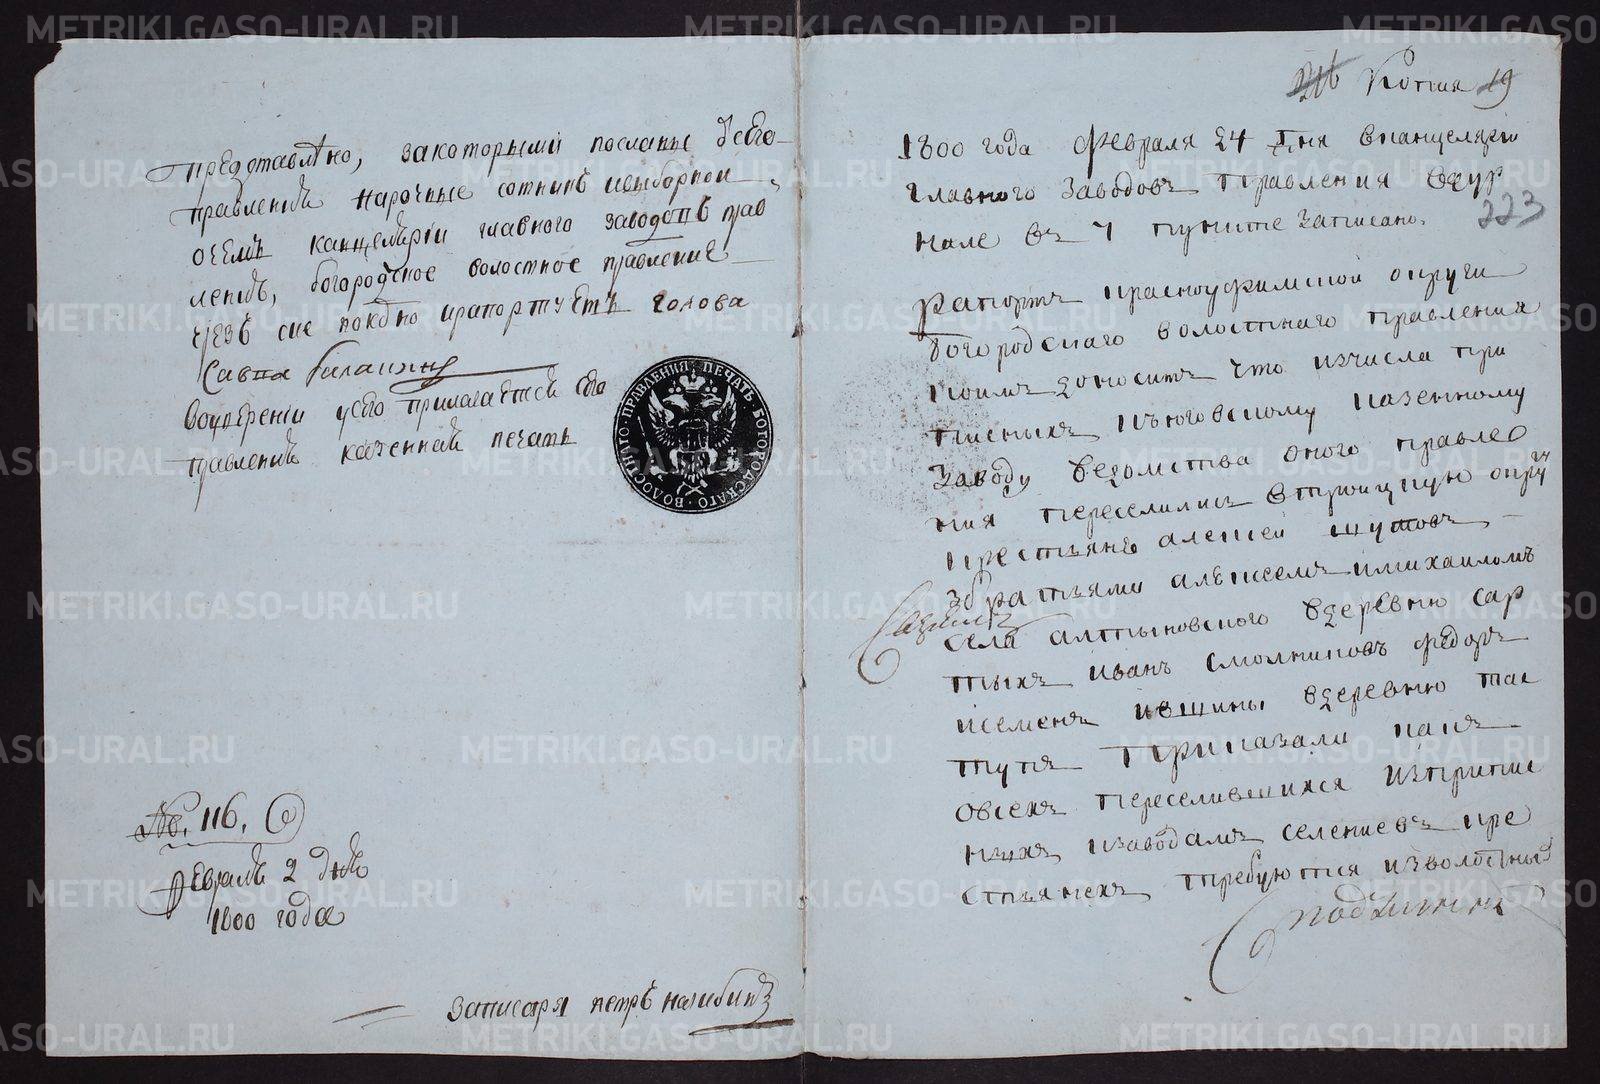 представлѣно, закоторыми посланы ѿсего
правленія нарочные сотникъ ивыборной
очемъ канцеляріи главного заводовъ прав
ленія, богородское волостное правление
чрезъ сие покорно ирапортуетъ голова
Савва
воуверении усего прилагается сего
правления казенная печать
ВОЛОСТНАГО ПРАВЛЕНІЯ ПЕЧАТЬ БОГОРОДСКАГО
№. 116.
Февраля 2 дня
1800 года
записаря петръ нагибинъ
Копия 19
223
1800 года февраля 24 дня вканцелярии
главного заводовъ правления вжур
нале въ 7 пункте записано.
Рапортъ красноуфимской округи
богородскаго волостнаго правления
коимъ доноситъ что изчисла при
писныхъ къюговскому казенному
заводу ведомства оного правле
ния переселились втроицкую округу
крестьянъ алексей шутовъ
збратьями алексеемъ имихаиломъ
села алтыновского вдеревню сар
тыхъ иванъ смолниковъ федоръ
исеменъ ившины вдеревню так
тукъ приказали какъ
овсехъ переселившихся изприпис
ныхъ кзаводамъ селениевъ кре
стьянехъ требуются изволостных
METRIKI.GASO-URAL.RU